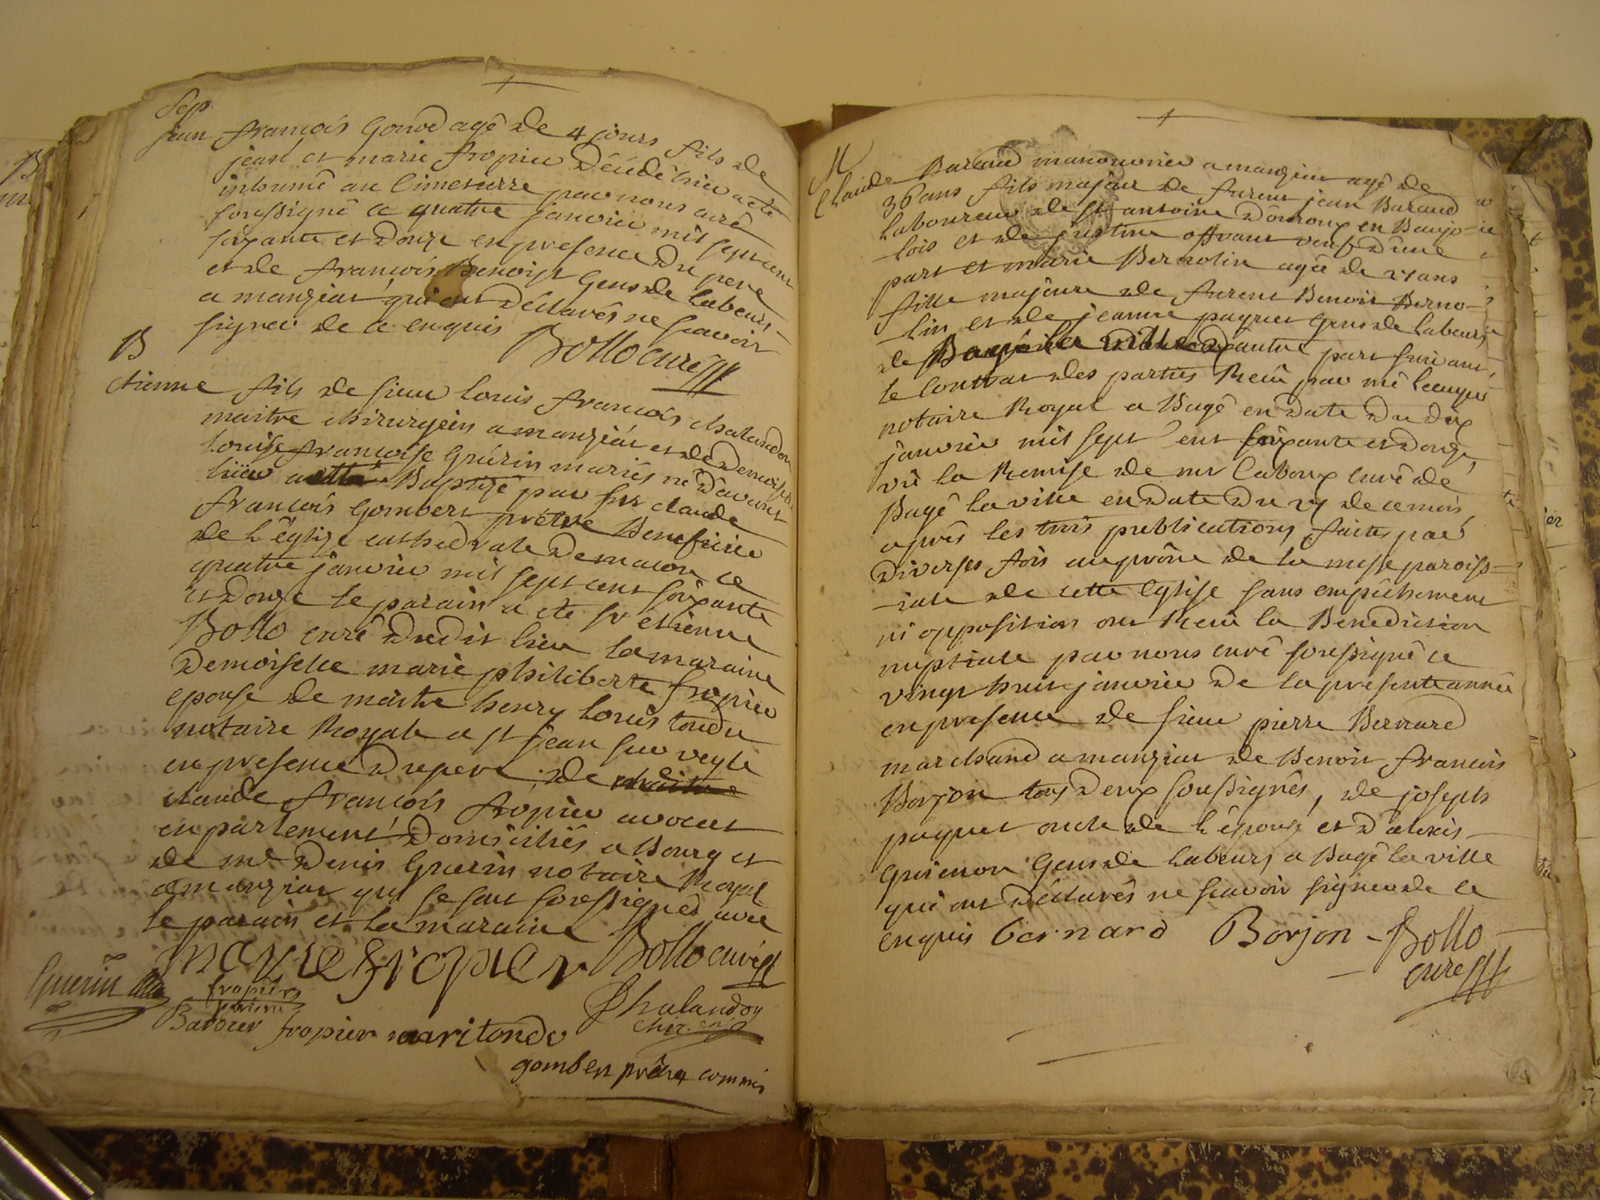 Sep
jean françois Gonod agé de 4 jours fils de
jean et marie fropier décédé hier a eté
inhumé au Cimetierre par nous curé
soussigné ce quatre janvier mil sept cent
soixante et douze en presence du pere
et de françois Benoist Gens de labeurs
a manziat qui ont déclarés ne scavoir
signer de ce enquis Bollo curé
B
etienne fils de sieur louis françois chalandon
maitre chirurgien a manziat et de demoiselle
louise françoise Guérin mariés né d'avant
hier a été Baptisé par sr claude
françois Gombert prêtre Beneficier
de l'église cathedrale de macon ce
quatre janvier mil sept cent soixante
et douze le parain a eté sr etienne
Bollo curé dudit lieu la maraine
Demoiselle marie philiberte fropier
epouse de maitre henry louis tondu
notaire Royale a st jean sur veyle
en presence du pere, de
claude françois fropier avocat
en parlement domiciliés a Bourg et
de me Denis Guerin notaire Royal
a manziat qui se sont soussignés avec
le parain et la maraine
marie fropier Bollo curé
Guerin fropier
Chalandon
chir
fropier mari tondu
gombert prêtre commis
M
Claude Baraud manouvrier a manziat agé de
36 ans fils majeur de furent jean Baraud
laboureur de st antoine d'ouroux en Beaujo-
lois et de justine offrant veuf d'une
part et marie Bernolin agée de 27 ans
fille majeure de furent Benoit Berno-
lin et de jeanne paquet Gens de labeurs
de Bagé la ville d'autre part suivant
le Contrat des parties Recu par me
notaire Royal a Bagé en date du dix
janvier mil sept cent soixante et douze,
vû la Remise de mr Caboux curé de
Bagé la ville en date du 27 de ce mois,
après les trois publications faites par
diverses fois au prône de la messe parois-
siale de cette Eglise sans empêchement
ni opposition ont Recu la Benediction
nuptiale par nous curé soussigné ce
vingt huit janvier de la presente année
en presence de sieur pierre Bernard
marchand a manziat de Benoit francois
Borjon tous deux soussignés, de joseph
paquet oncle de l'épouse et d'alexis
Guienon Gens de labeurs a Bagé la ville
qui ont déclarés ne scavoir signer de ce
enquis bernard Borjon Bollo
curé